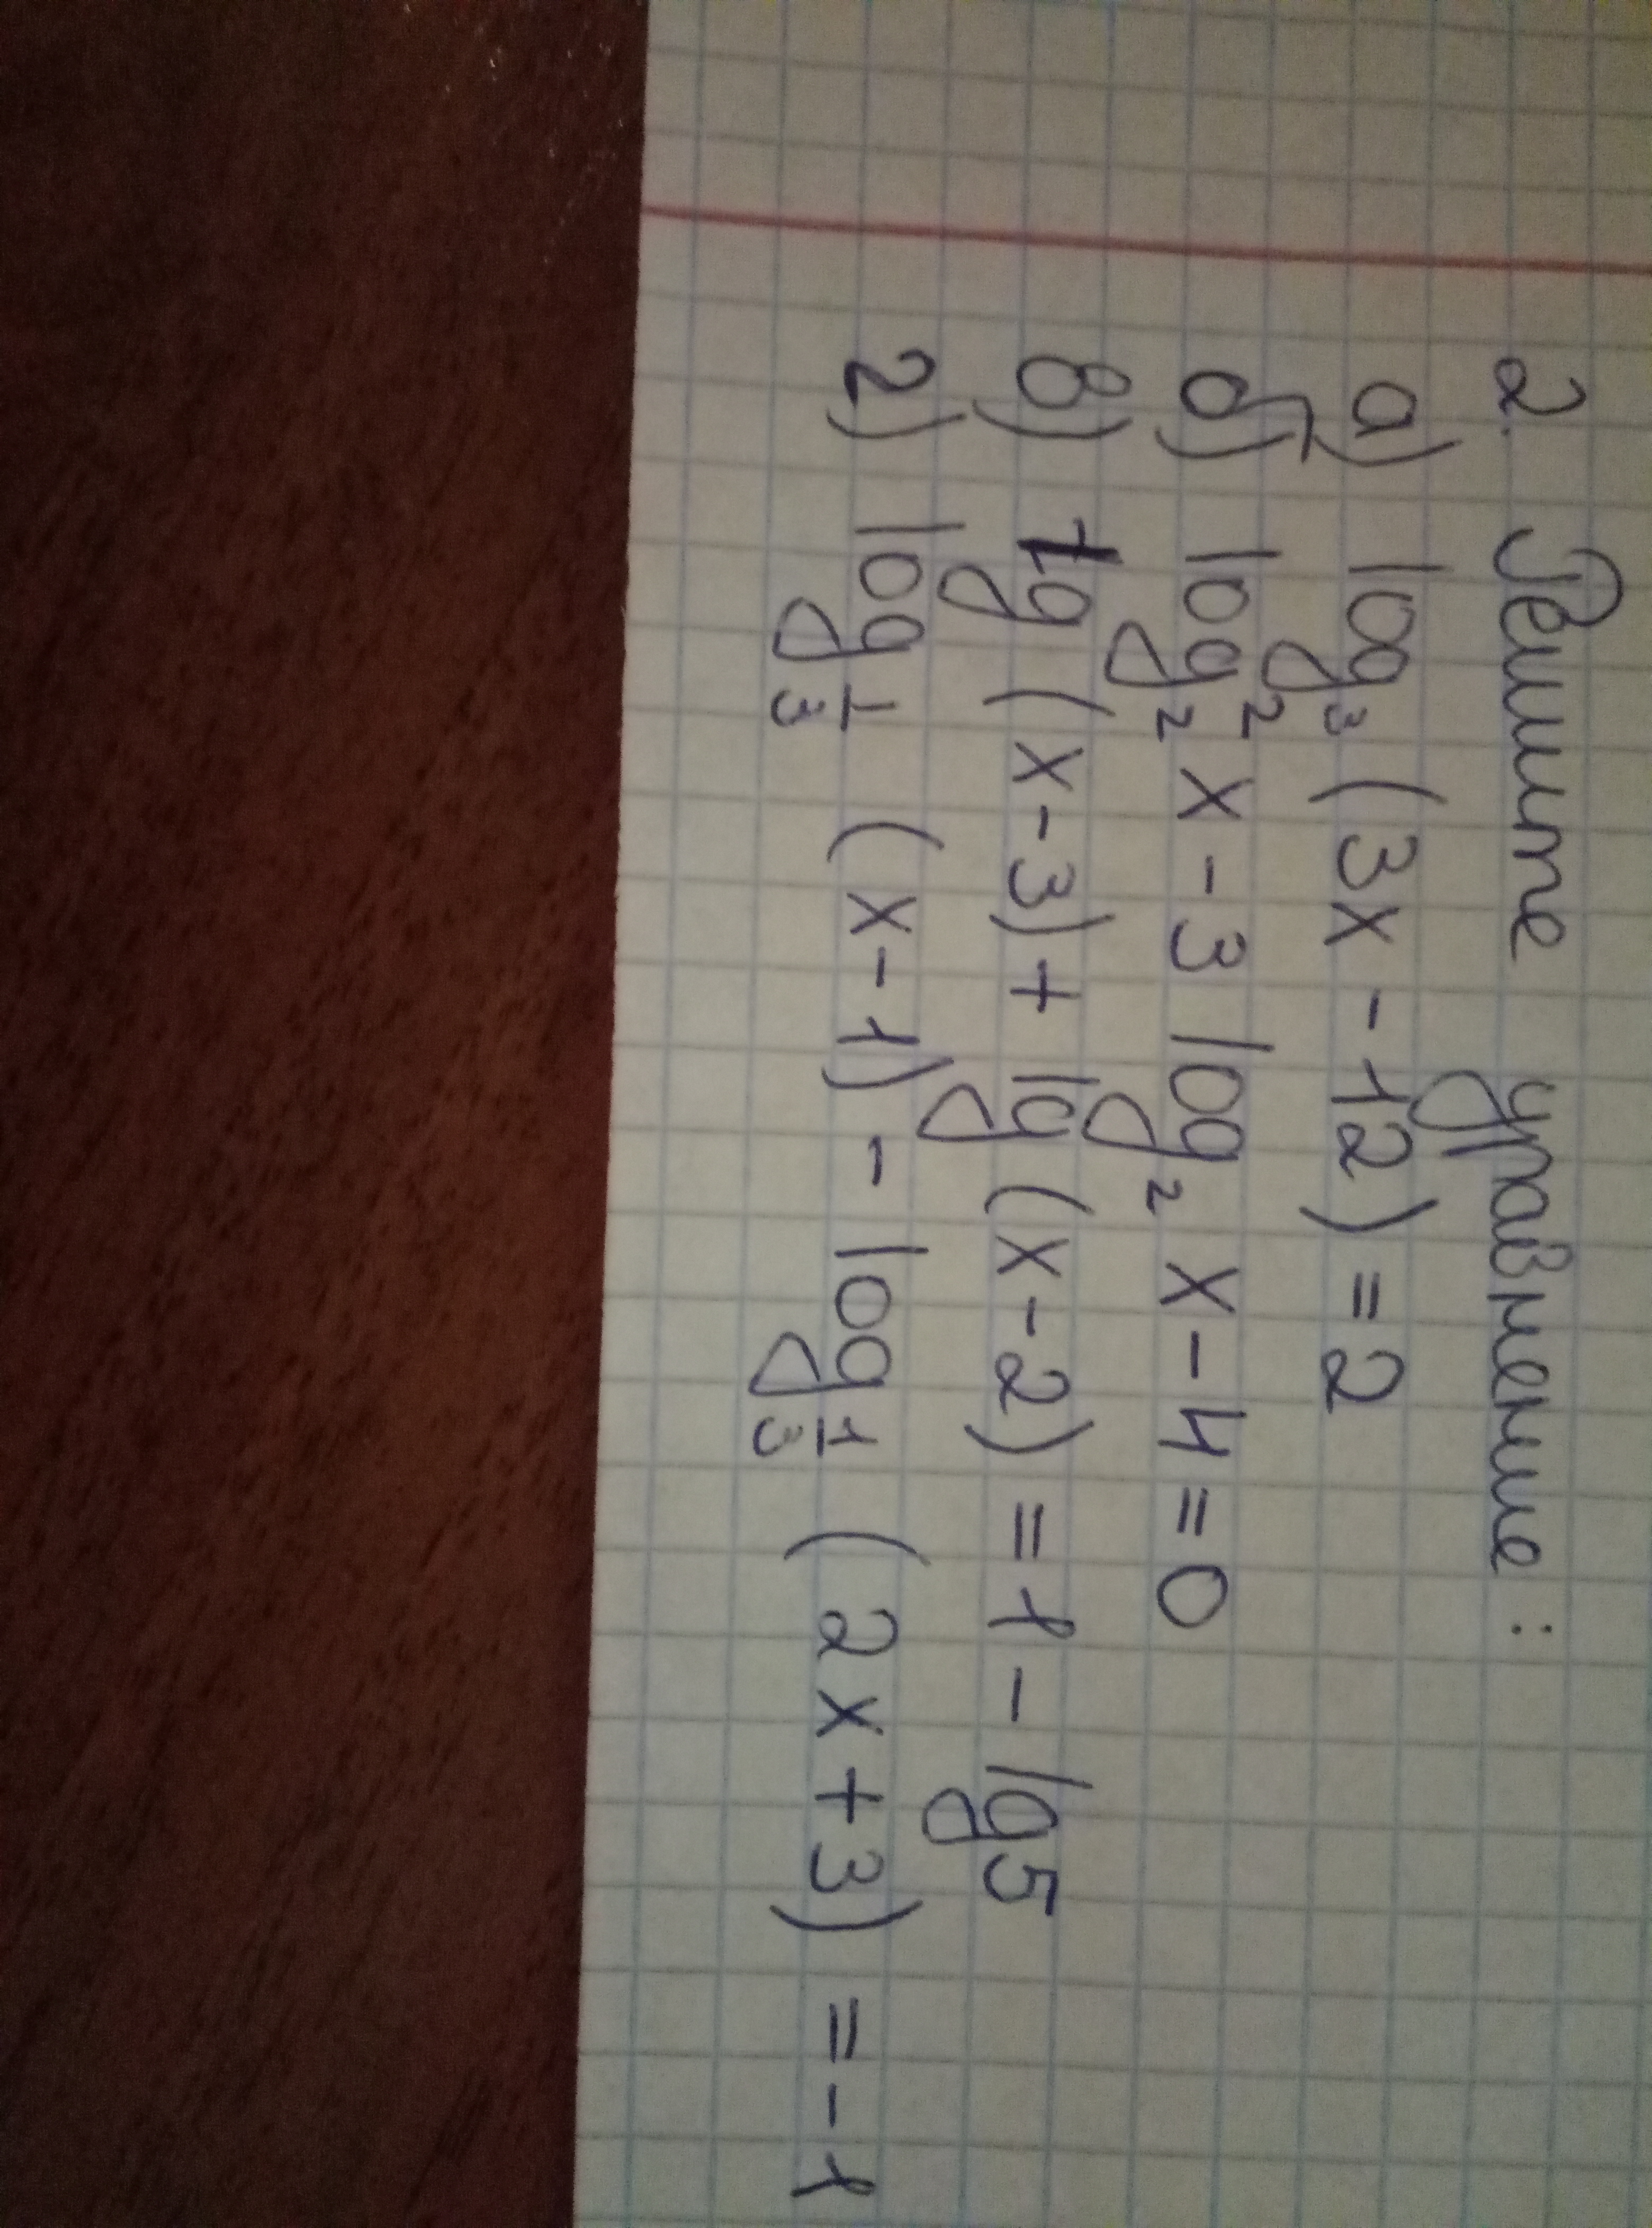 2. Решите уравнение:
а) log₃ (3x - 12) = 2
б) log₂² x - 3 log₂ x - 4 = 0
в) lg (x - 3) + lg (x - 2) = 1 - lg 5
г) log 1/3 (x - 1) - log 1/3 (2x + 3) = -1